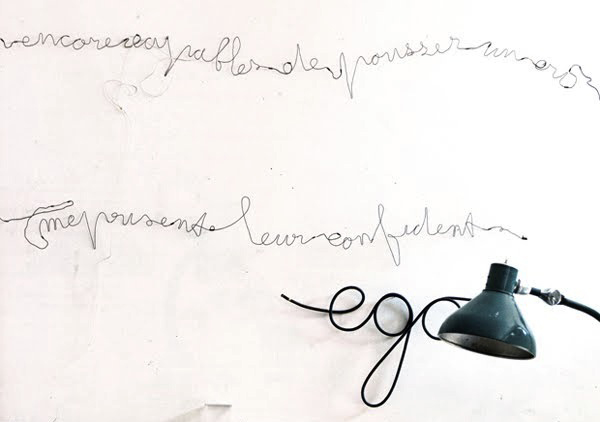 encore capables de pousser un
meprisent leur confident
ego